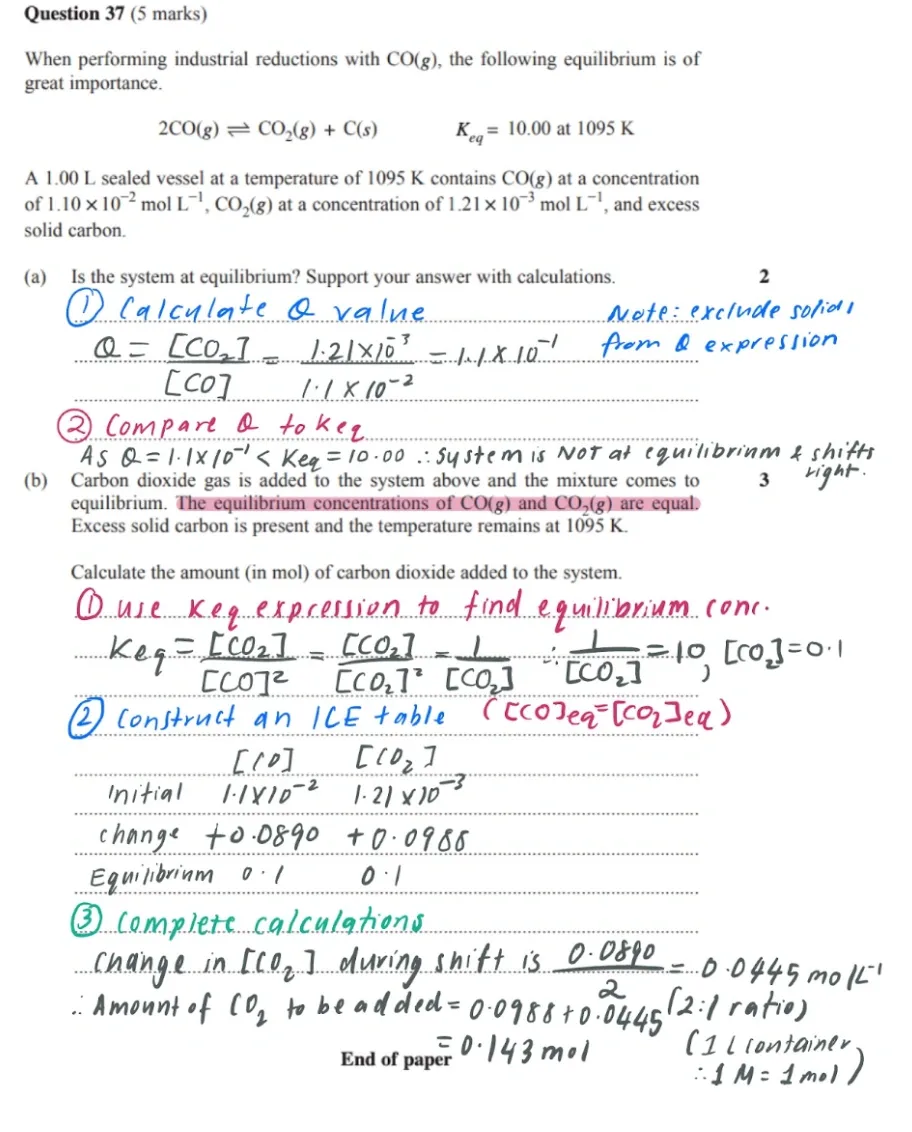 Question 37 (5 marks)
When performing industrial reductions with CO(g), the following equilibrium is of
great importance.
2CO(g) ⇌ CO₂(g) + C(s) K_eq = 10.00 at 1095 K
A 1.00 L sealed vessel at a temperature of 1095 K contains CO(g) at a concentration
of 1.10 × 10⁻² mol L⁻¹, CO₂(g) at a concentration of 1.21 × 10⁻³ mol L⁻¹, and excess
solid carbon.
(a) Is the system at equilibrium? Support your answer with calculations. 2
① Calculate Q value Note: exclude solids
from Q expression
Q = [CO₂] / [CO] = 1.21×10⁻³ / 1.1 × 10⁻² = 1.1 × 10⁻¹
② Compare Q to Keq
As Q = 1.1×10⁻¹ < Keq = 10.00 ∴ system is NOT at equilibrium & shifts
right.
(b) Carbon dioxide gas is added to the system above and the mixture comes to 3
equilibrium. The equilibrium concentrations of CO(g) and CO₂(g) are equal.
Excess solid carbon is present and the temperature remains at 1095 K.
Calculate the amount (in mol) of carbon dioxide added to the system.
① use Keq expression to find equilibrium conc.
Keq = [CO₂] / [CO]² = [CO₂] / [CO₂]² = 1 / [CO₂] ∴ 1 / [CO₂] = 10, [CO₂] = 0.1
② Construct an ICE table ([CO]eq = [CO₂]eq)
[CO] [CO₂]
Initial 1.1×10⁻² 1.21×10⁻³
change +0.0890 +0.0988
Equilibrium 0.1 0.1
③ Complete calculations
Change in [CO₂] during shift is 0.0890 / 2 = 0.0445 mol L⁻¹
(2:1 ratio)
∴ Amount of CO₂ to be added = 0.0988 + 0.0445
= 0.143 mol
(1 L container
∴ 1 M = 1 mol)
End of paper